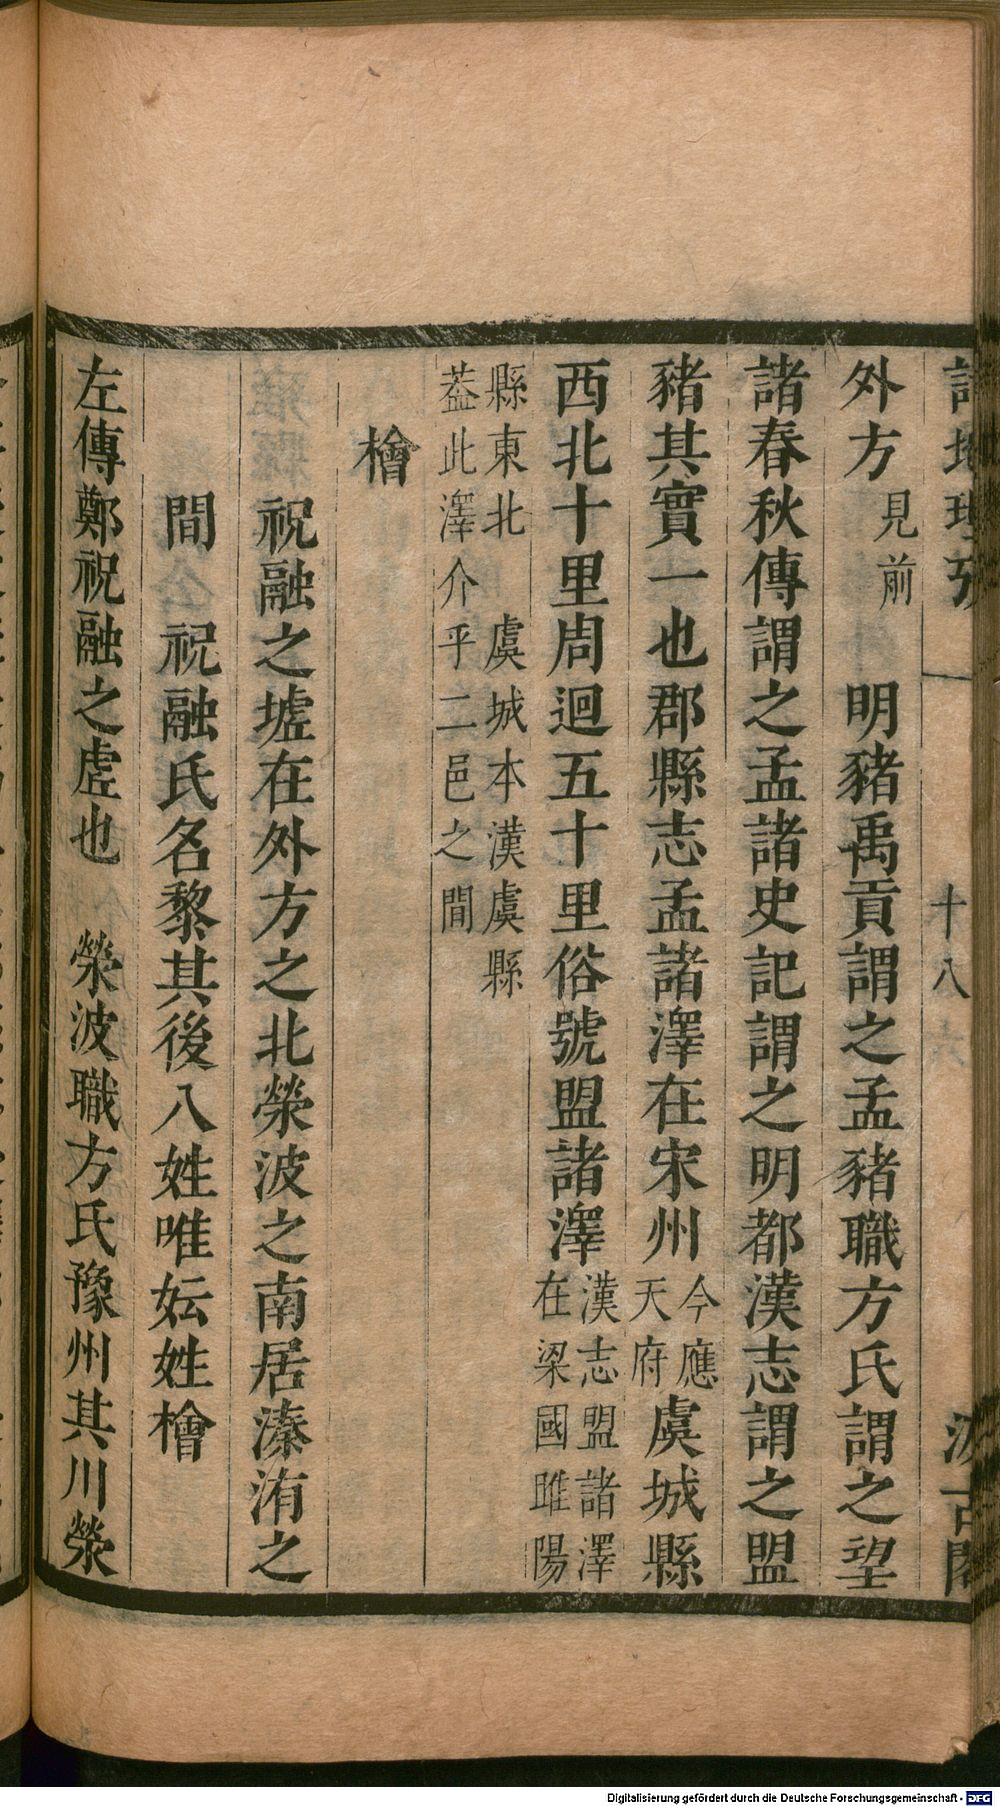 外方見前　明豬禹貢謂之孟豬職方氏謂之望
諸春秋傳謂之孟諸史記謂之明都漢志謂之盟
豬其實一也郡縣志孟諸澤在宋州今應天府虞城縣
西北十里周迴五十里俗號盟諸澤漢志盟諸澤在梁國雎陽
縣東北　虞城本漢虞縣葢此澤介乎二邑之間
檜
祝融之墟在外方之北滎波之南居溱洧之
間　祝融氏名黎其後八姓唯妘姓檜
左傳鄭祝融之虛也　滎波職方氏豫州其川滎
十八
Digitalisierung gefördert durch die Deutsche Forschungsgemeinschaft - DFG